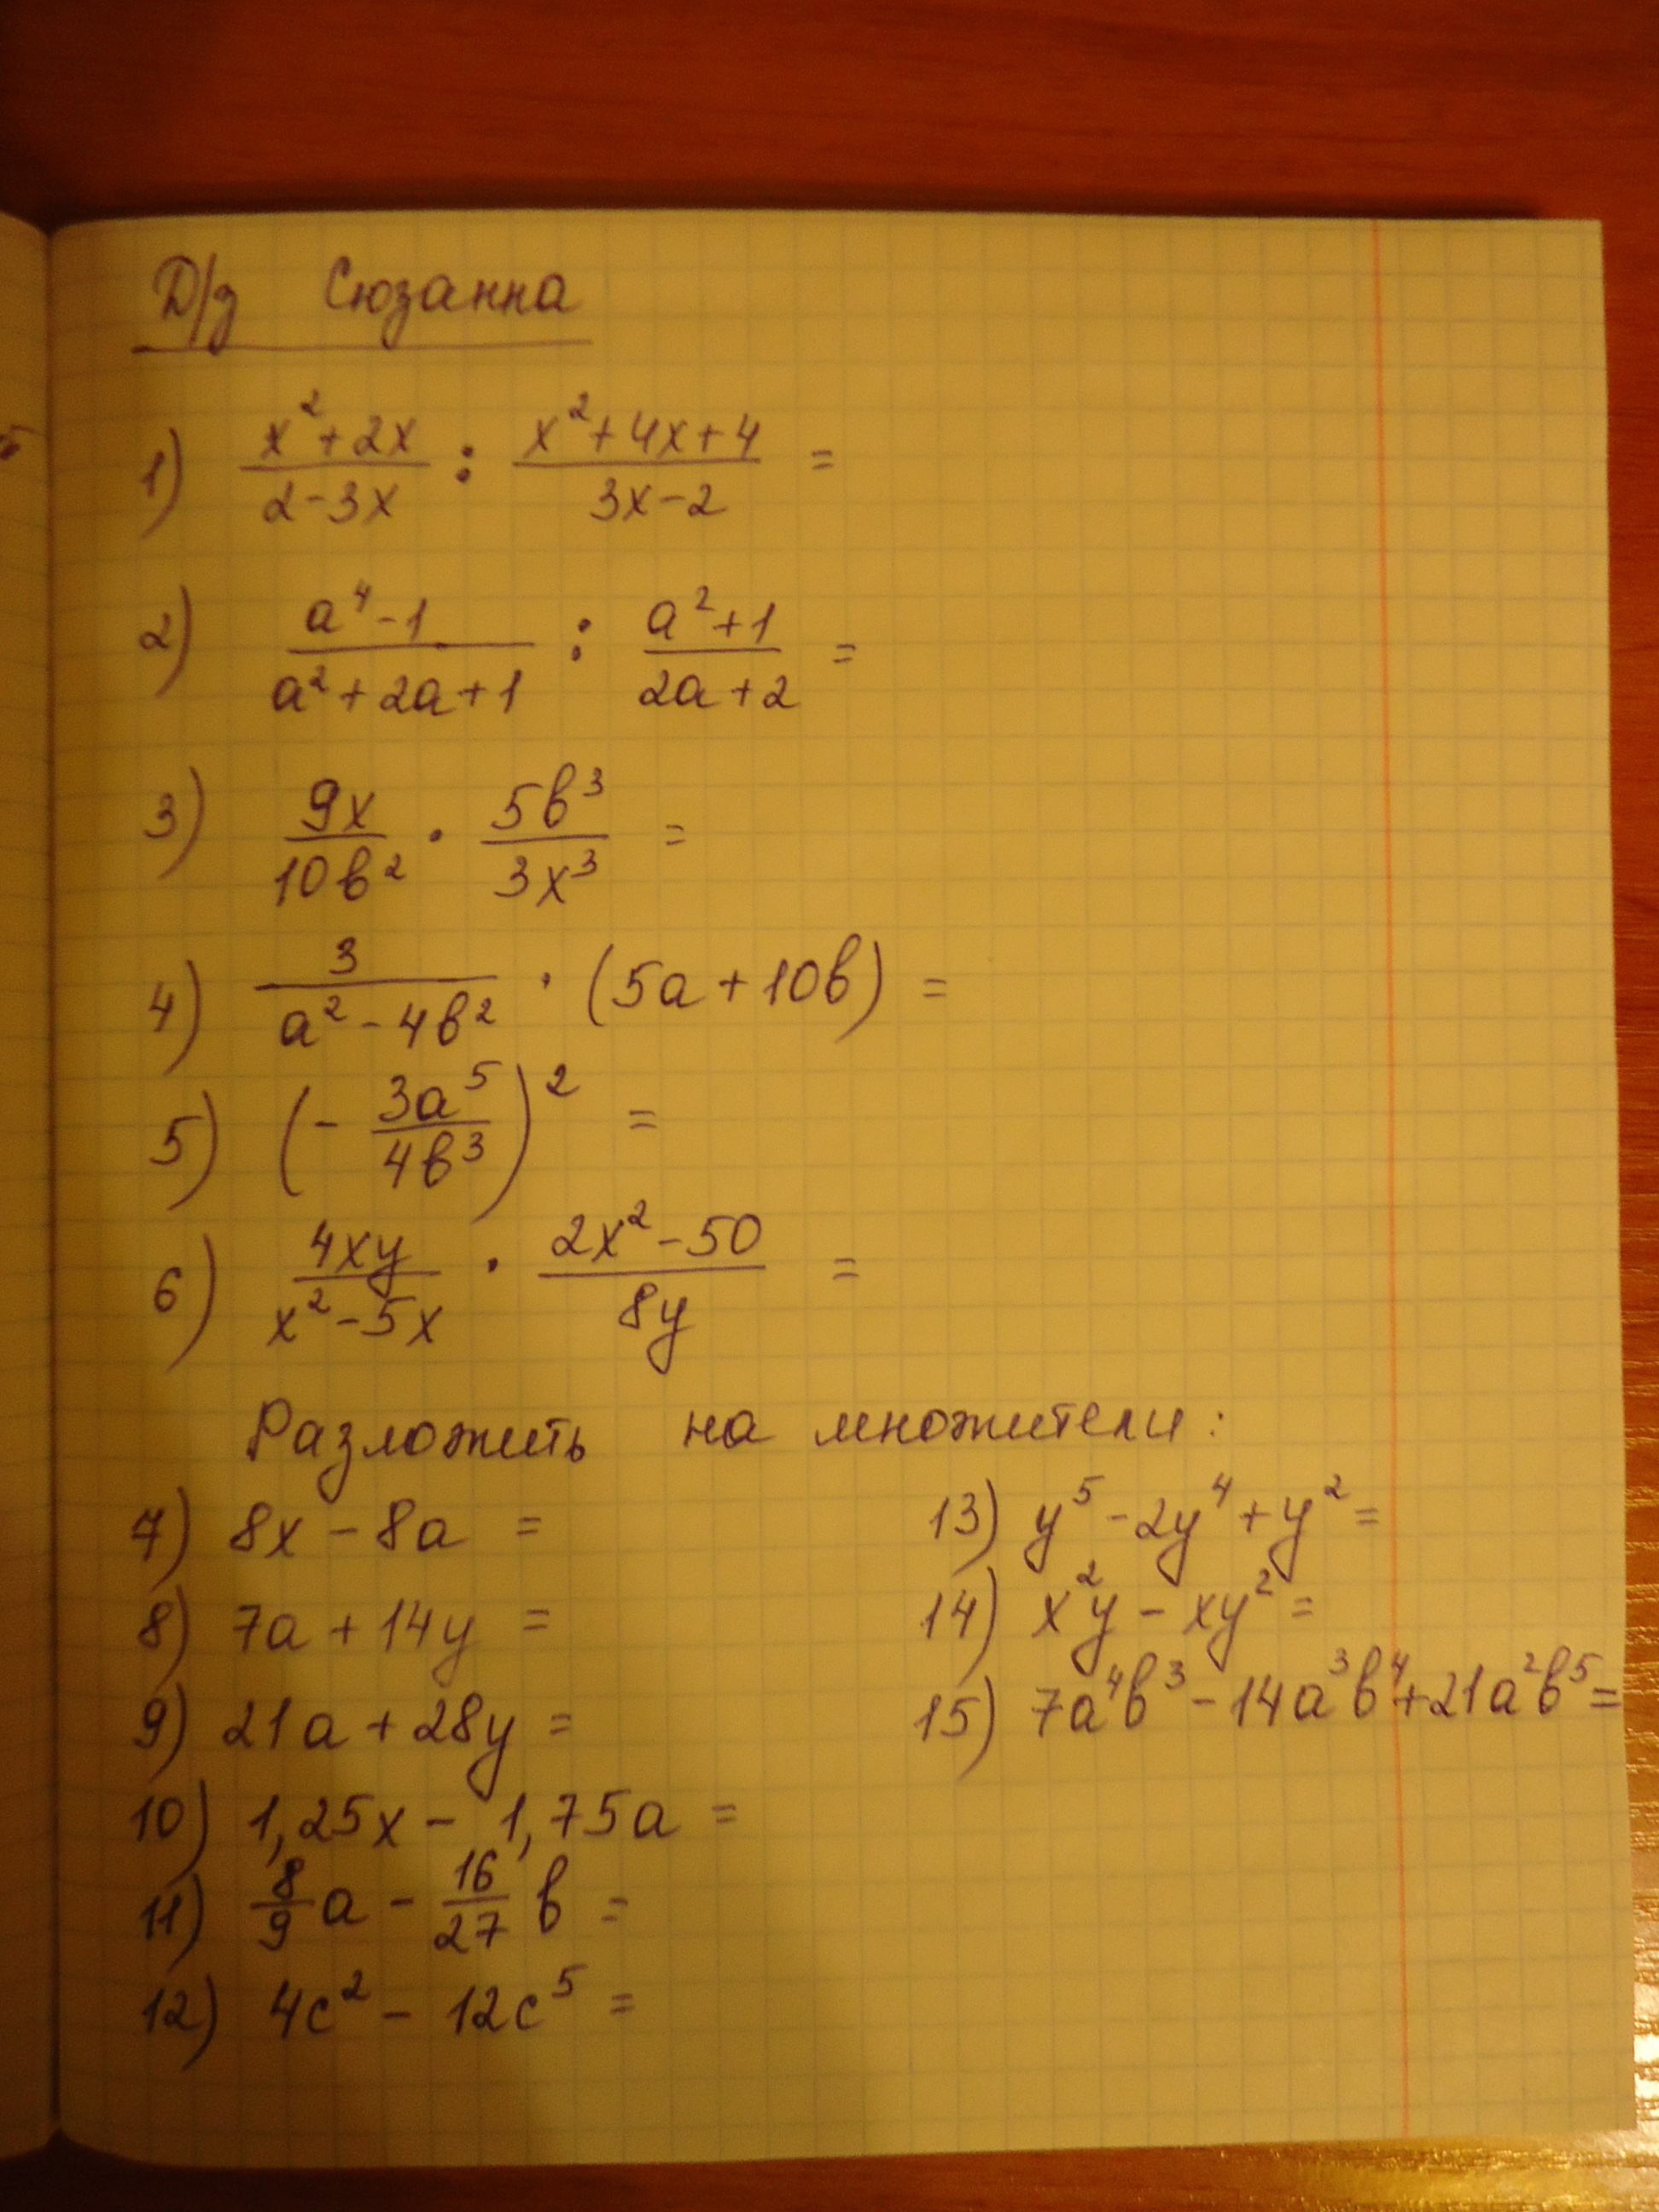 Д/з Сюзанна
1) (x²+2x)/(2-3x) : (x²+4x+4)/(3x-2) =
2) (a⁴-1)/(a²+2a+1) : (a²+1)/(2a+2) =
3) 9x/10в² · 5в³/3x³ =
4) 3/(a²-4в²) · (5a+10в) =
5) (-3a⁵/4в³)² =
6) 4xy/(x²-5x) · (2x²-50)/8y =
Разложить на множители:
7) 8x-8a =
8) 7a+14y =
9) 21a+28y =
10) 1,25x - 1,75a =
11) 8/9 a - 16/27 в =
12) 4c² - 12c⁵ =
13) y⁵-2y⁴+y² =
14) x²y - xy² =
15) 7a⁴в³-14a³в⁴+21a²в⁵ =